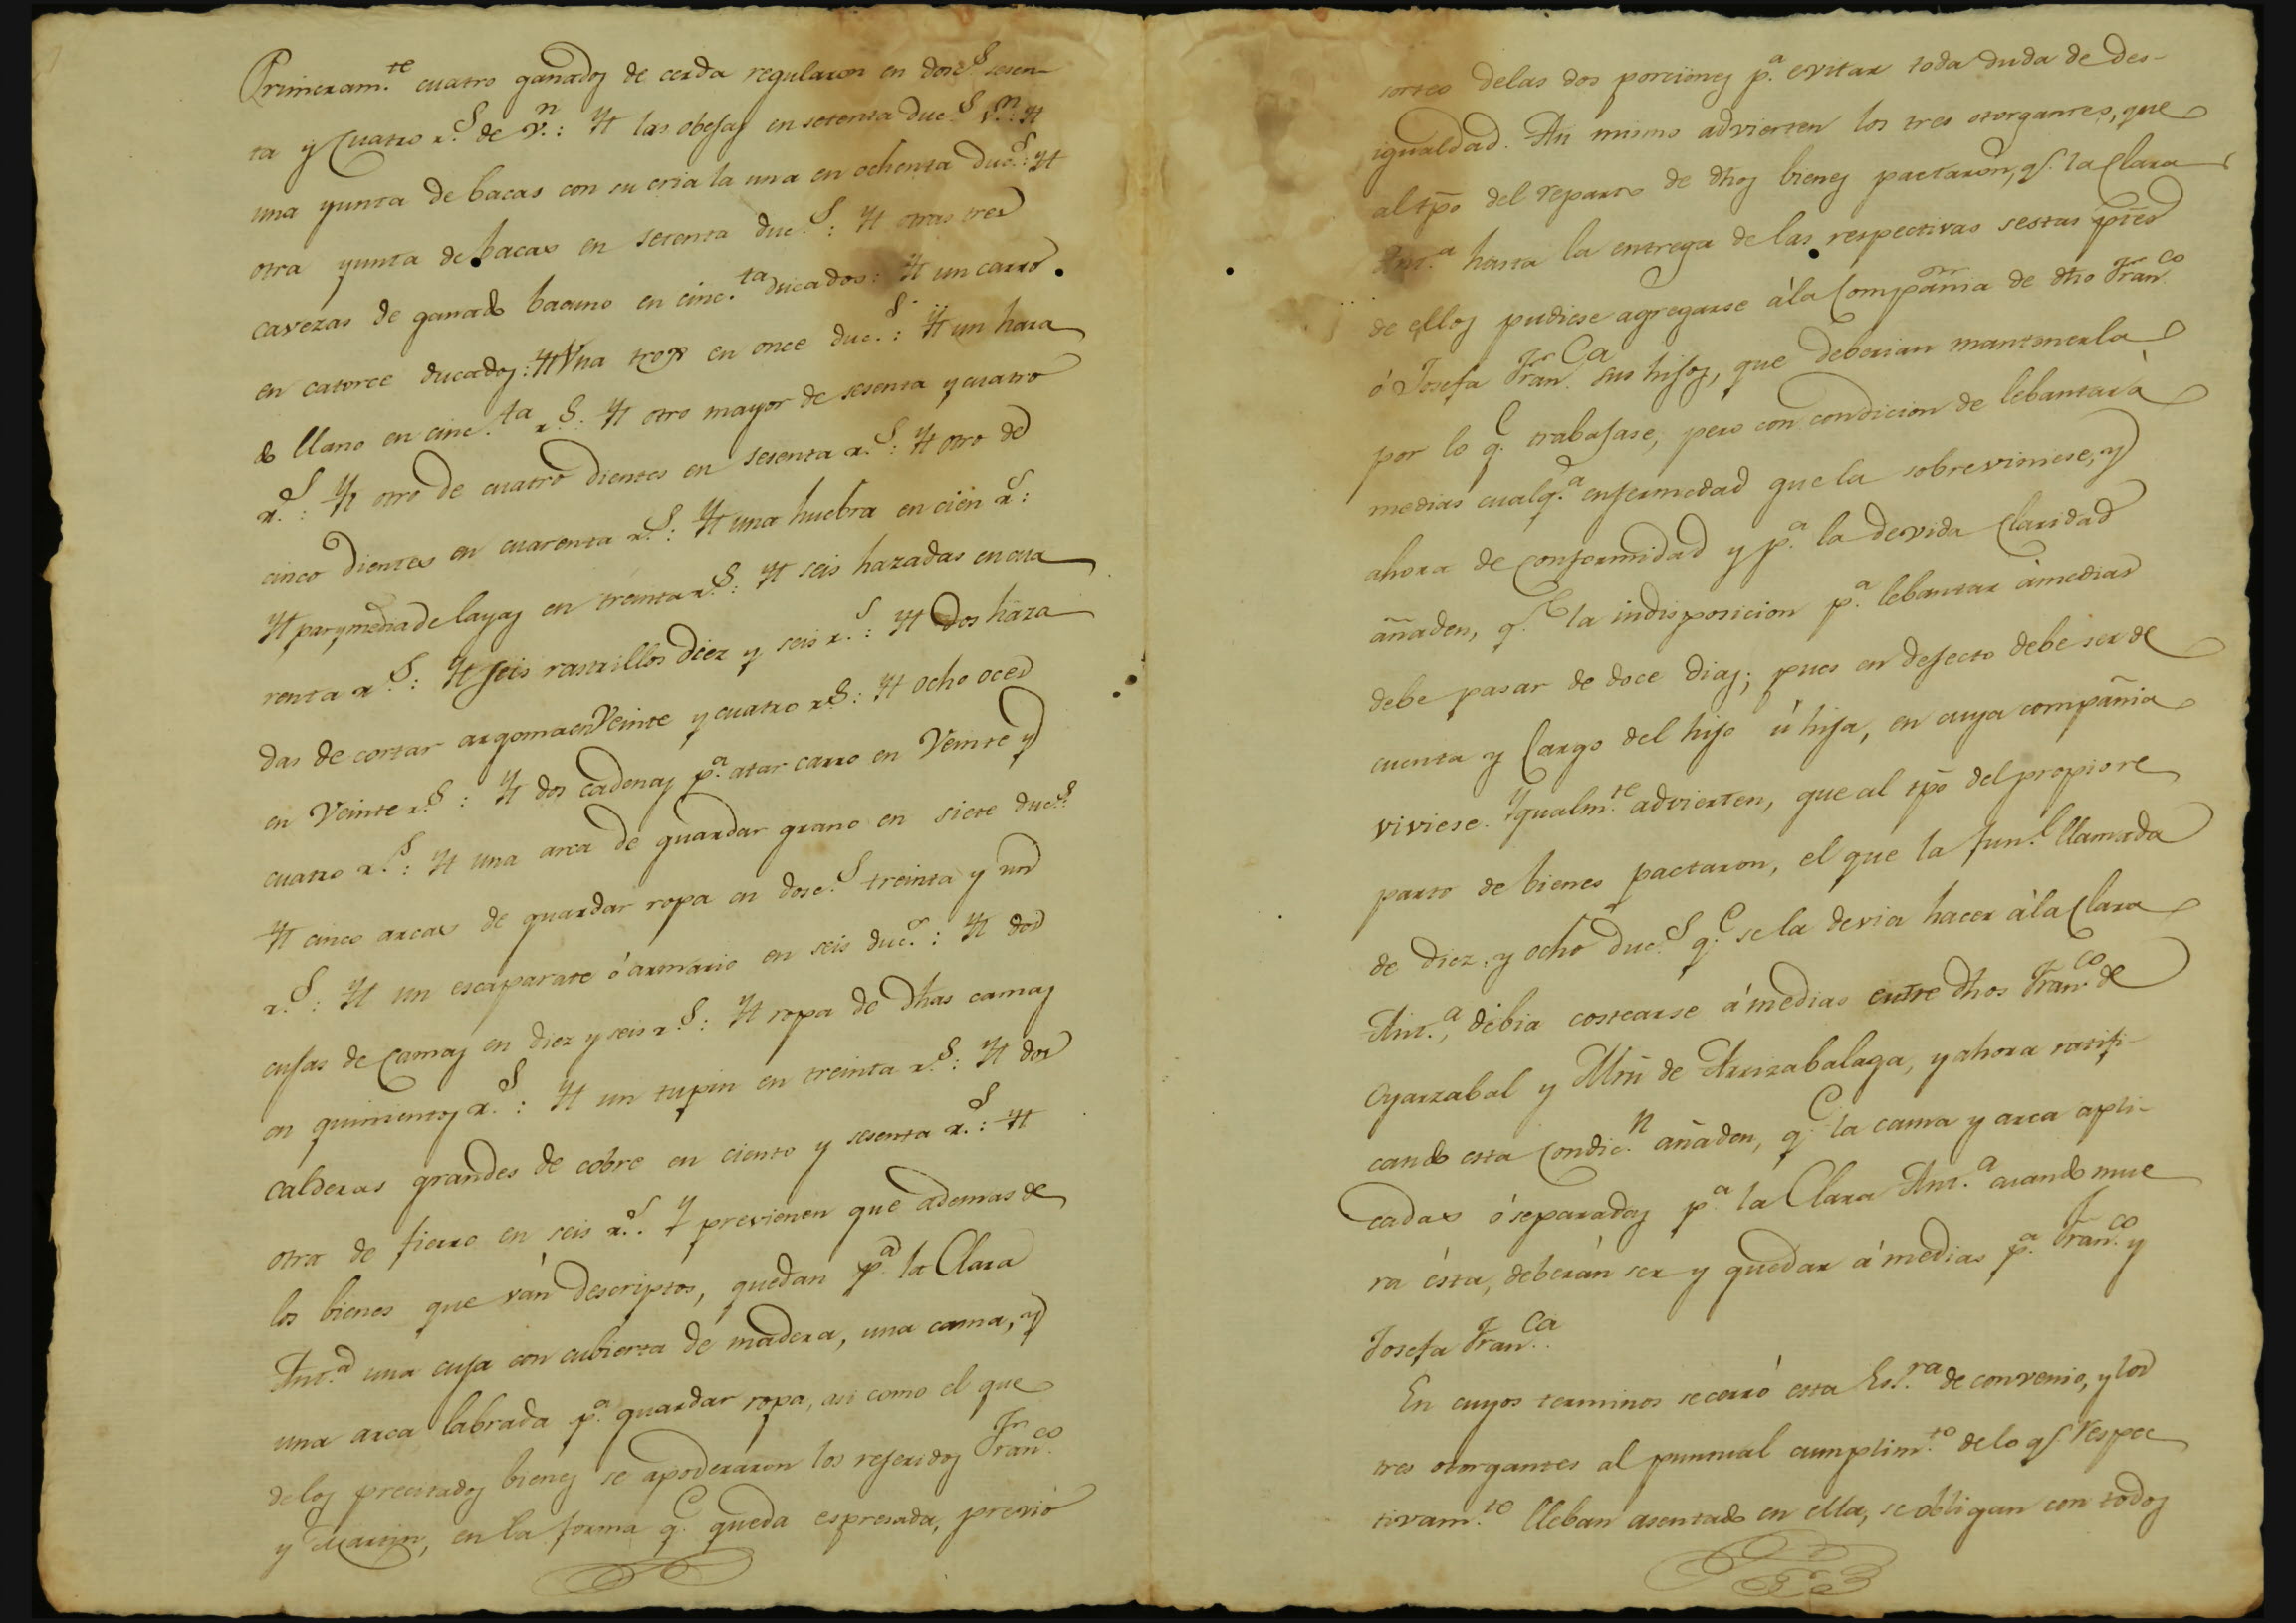 Primeram.te cuatro ganados de cerda regularon en dosc.s sesen-
ta y Cuatro r.s de v.n: Yt las obejas en setenta duc.s v.n: Yt
una yunta de bacas con su cria la una en ochenta duc.s: Yt
otra yunta de bacas en setenta duc.s: Yt otras tres
cavezas de ganado bacuno en cinc.ta ducados: Yt un carro
en catorce ducados: Yt Una en once duc.s: Yt un hara
do llano en cinc.ta r.s: Yt otro mayor de sesenta y cuatro
r.s: Yt otro de cuatro dientes en sesenta r.s: Yt otro de
cinco dientes en cuarenta r.s: Yt una huebra en cien r.s:
Yt par y media de layas en treinta r.s: Yt seis hazadas en cua
renta r.s: Yt seis rastrillos diez y seis r.s: Yt dos haza
das de cortar argoma en Veinte y cuatro r.s: Yt ocho oces
en Veinte r.s: Yt dos cadenas p.a atar carro en Veinte y
cuatro r.s: Yt una arca de guardar grano en siete duc.s:
Yt cinco arcas de guardar ropa en dosc.s treinta y un
r.s: Yt un escaparate ó armario en seis duc.s: Yt dos
cujas de Camas en diez y seis r.s: Yt ropa de dhas camas
en quinientos r.s: Yt un tupin en treinta r.s: Yt dos
calderas grandes de cobre en ciento y sesenta r.s: Yt
otra de fierro en seis r.s. Y previenen que ademas de
los bienes que ván descriptos, quedan p.a la Clara
Ant.a una cuja con cubierta de madera, una cama, y
una arca labrada p.a guardar ropa, asi como el que
de los precitados bienes se apoderaron los referidos Fran.co
y Martin, en la forma q.e queda espresada, previo
sorteo de las dos porciones p.a evitar toda duda de des-
igualdad. Asi mismo advierten los tres otorgantes, que
al tpo del reparto de dhos bienes pactaron, q.e la Clara
Ant.a hasta la entrega de las respectivas sestas ptes
de ellos pudiese agregarse á la Compañia de dho Fran.co
ó Josefa Fran.ca sus hijos, que deberian mantenerla
por lo q.e trabajase, pero con condicion de lebantar á
medias cualq.a enfermedad que la sobreviniese, y
ahora de conformidad y p.a la devida Claridad
añaden, q.e la indisposicion p.a lebantar á medias
debe pasar de doce dias; pues en defecto debe ser de
cuenta y Cargo del hijo ú hija, en cuya compañia
viviese. Ygualm.te advierten, que al tpo del propio re
parto de bienes pactaron, el que la fun.l llamada
de diez y ocho duc.s q.e se la devia hacer á la Clara
Ant.a, debia costearse á medias entre dhos Fran.co de
Oyarzabal y Mrn de Arrizabalaga, y ahora ratifi-
cando esta Condic.n añaden, q.e la cama y arca apli-
cadas ó separadas p.a la Clara Ant.a cuando mue
ra ésta, deberán ser y quedar á medias p.a Fran.co y
Josefa Fran.ca.
En cuyos terminos se cerró esta Es.ra de convenio, y los
tres otorgantes al puntual cumplim.to de lo q.e respec
tivam.te lleban asentado en ella, se obligan con todos